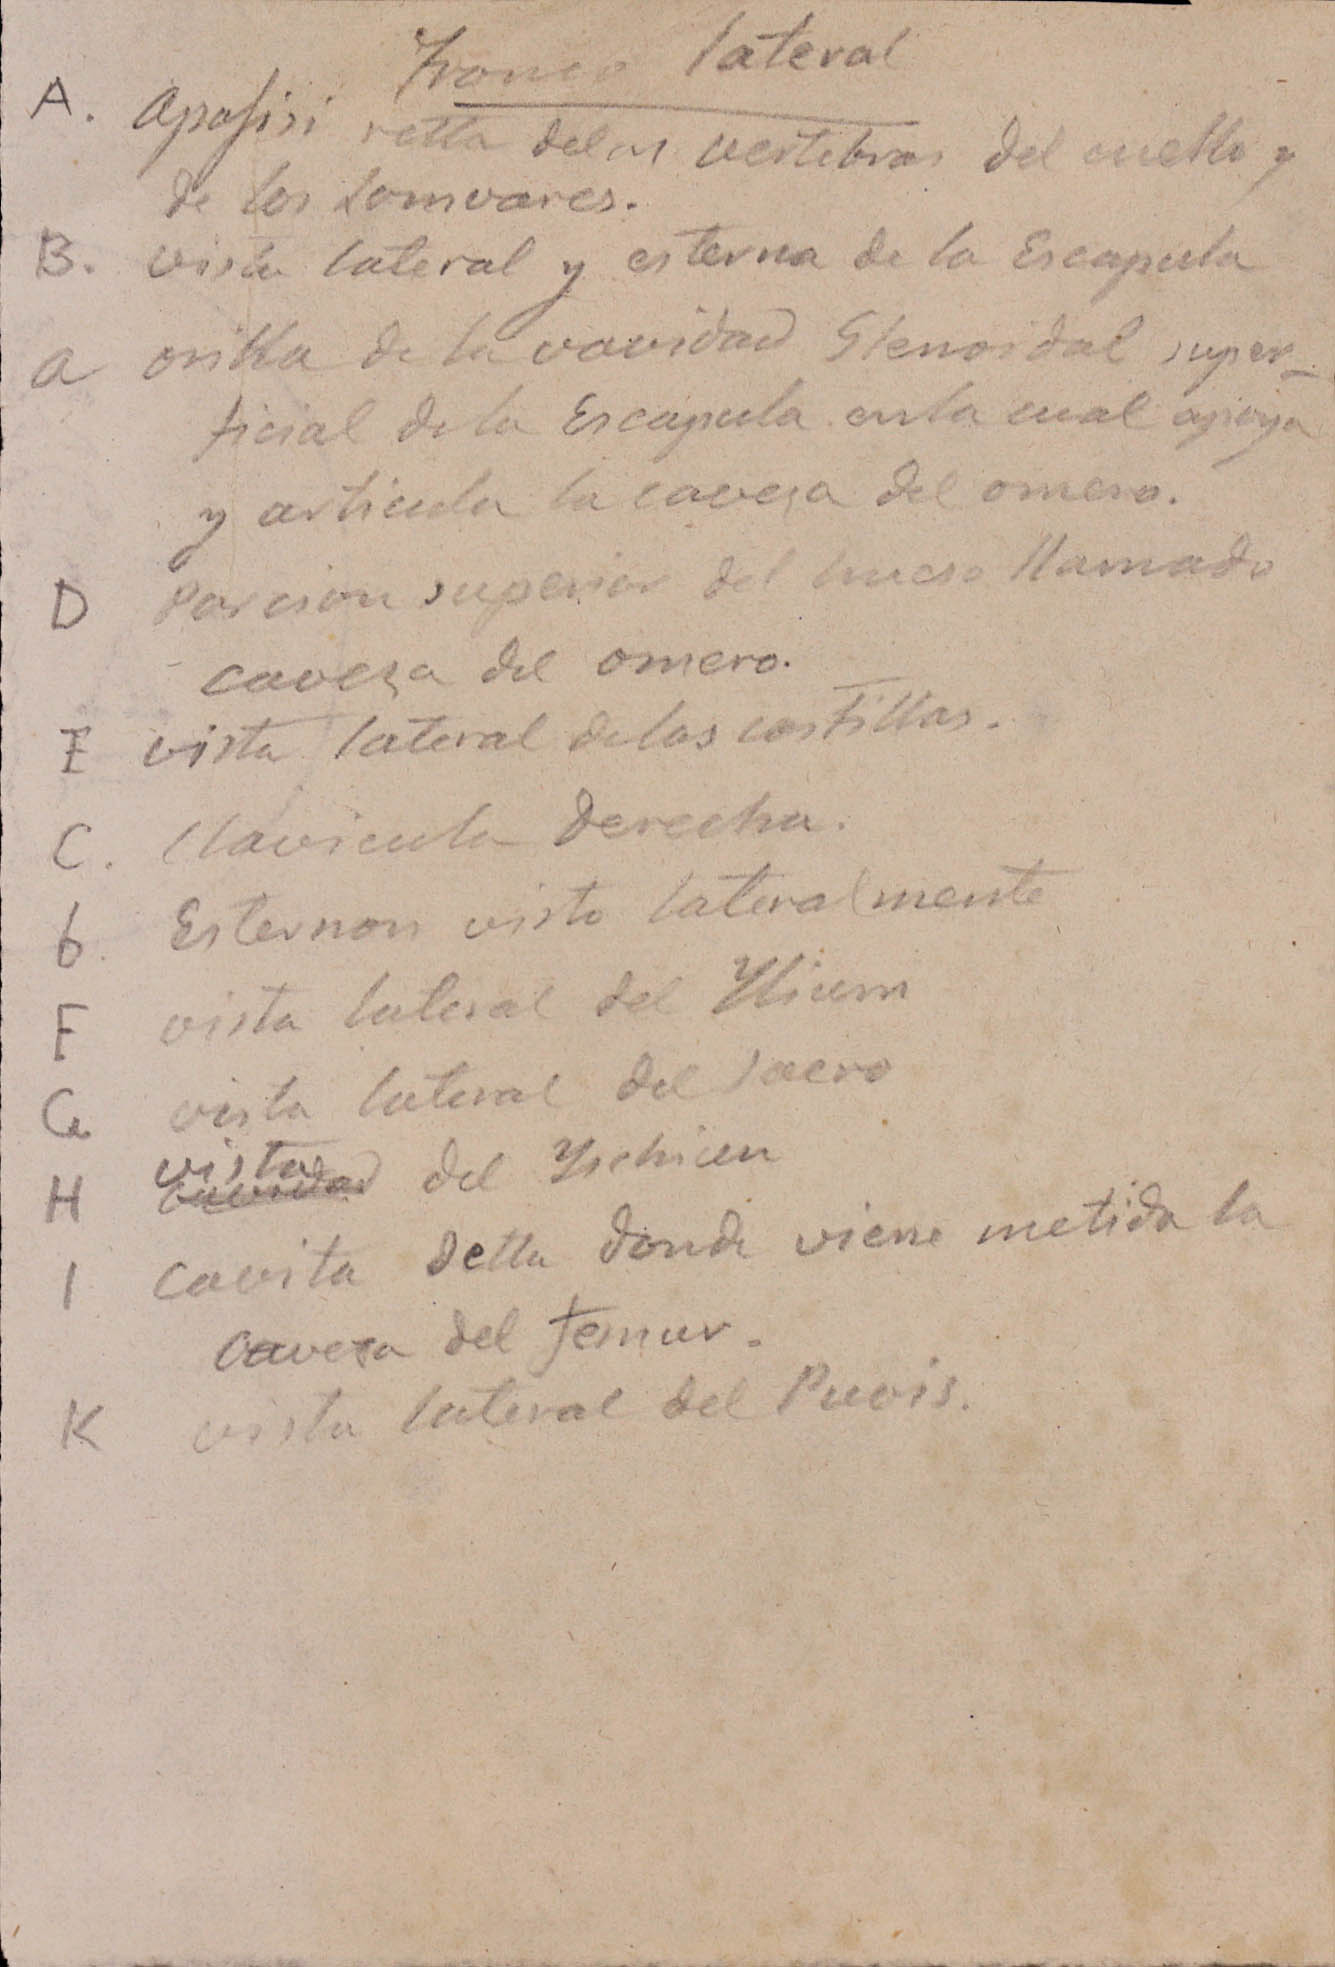 Tronco lateral
A. Apofisi retta delas vertebras del cuello y
de los Lomvares.
B. vista lateral y esterna de la Escapula
a orilla de la vavidad Glenoidal super-
ficial de la Escapula en la cual apoya
y articula la caveza del omero.
D Porcion superior del hueso llamado
caveza del omero.
E vista lateral de las costillas.
C. Clavicula derecha.
b. Esternon visto lateralmente
F vista lateral del Ylium
G vista lateral del sacro
H vista cavidad del Yschium
I cavita detta donde viene metida la
caveza del femur.
K vista lateral del Puvis.